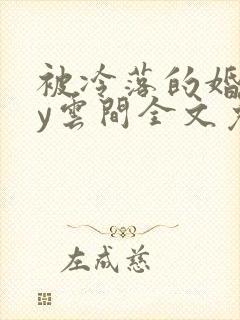 被冷落的婚
y雲間全文
左成慈